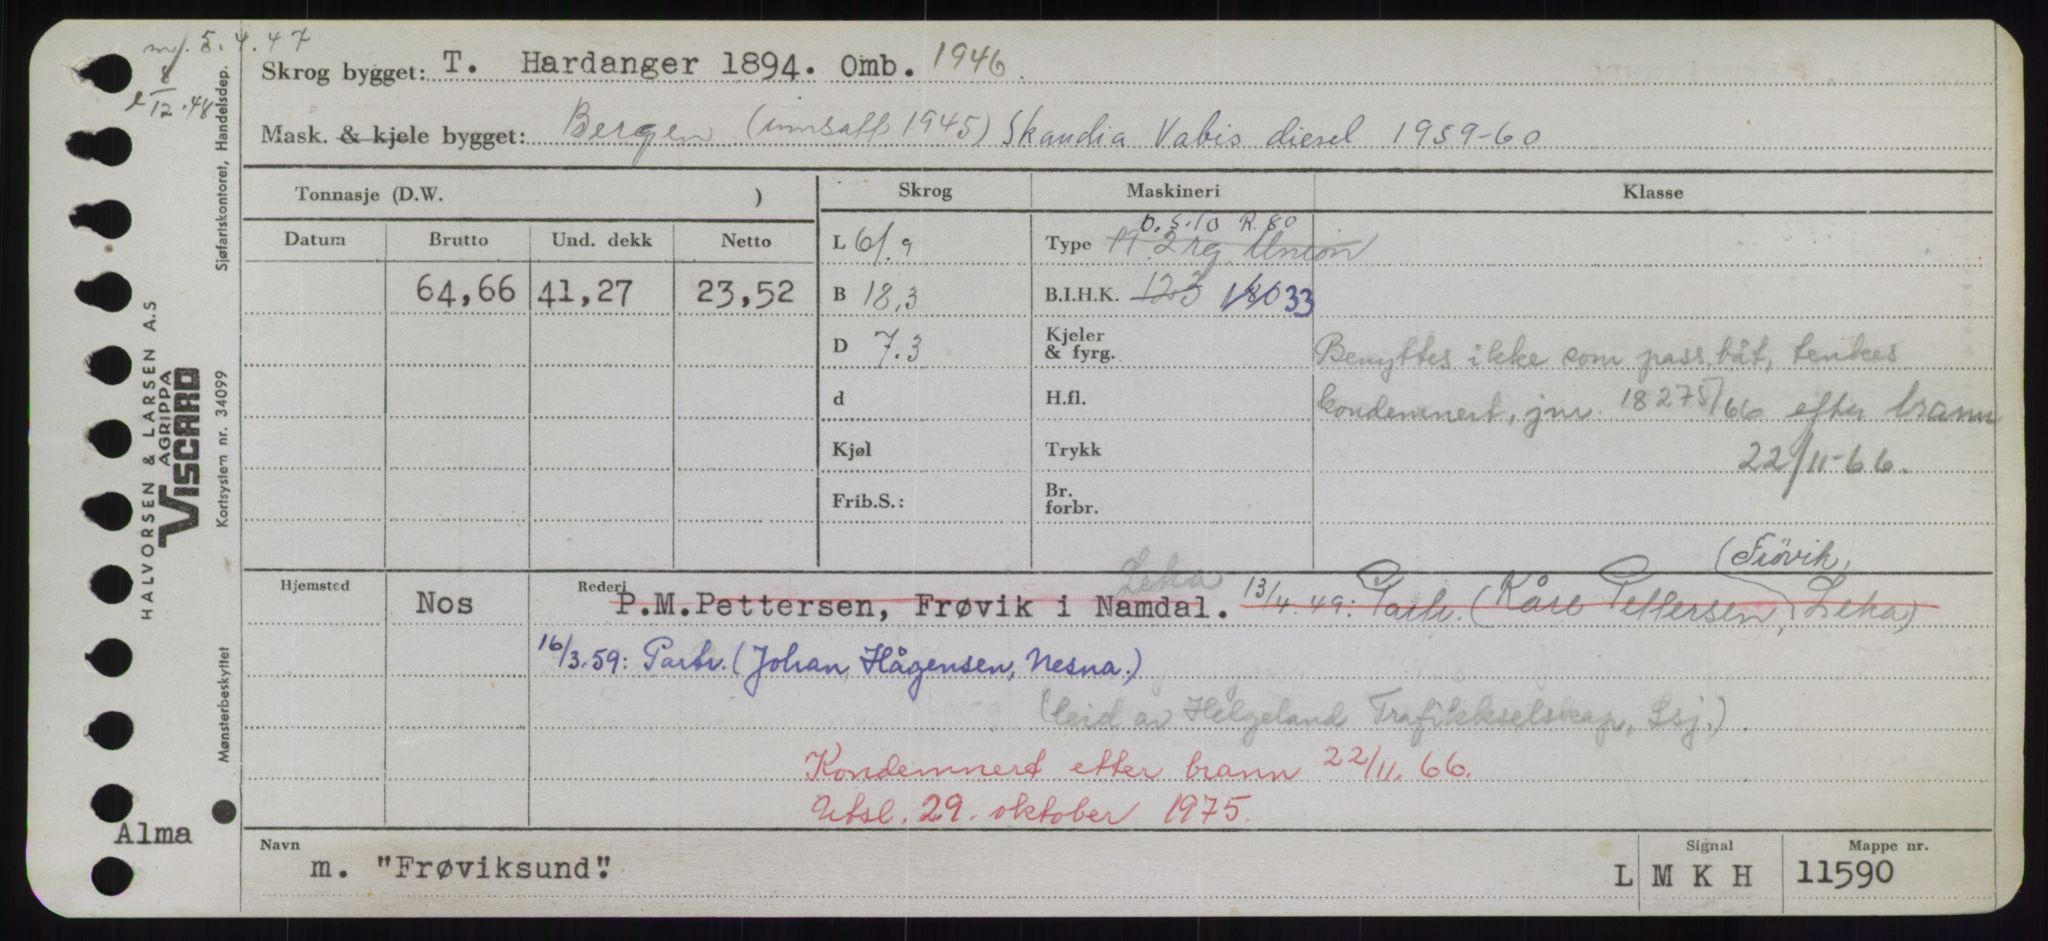 m/ 5.4.47
8/12.48
Skrog bygget: T. Hardanger 1894. Omb. 1946
Mask. & kjele bygget: Bergen (innsatt 1945) Skandia Vabis diesel 1959-60
Tonnasje (D.W. )
Skrog
Maskineri
Klasse
Datum
Brutto
Und. dekk
Netto
64,66
41,27
23,52
L 61.9
B 18,3
D 7.3
d
Kjøl
Frib.S.:
D.S.10 R.80
Type M 2 rg Union
B.I.H.K. 123 180 33
Kjeler
& fyrg.
H.fl.
Trykk
Br.
forbr.
Benyttes ikke som pass.båt, tenkes
kondemnert, jnr. 18275/66 efter brann
22/11-66.
Hjemsted
Nos
Rederi
Leka
(Frövik,
P.M.Pettersen, Frøvik i Namdal. 13/4.49: Partr. (Kåre Pettersen, Leka)
16/3.59: Partr. (Johan Hågensen, Nesna.)
(leid av Helgeland Trafikkselskap, Ssj.)
Kondemnert etter brann 22/11.66.
Utsl. 29. oktober 1975.
Alma
Navn
m. "Frøviksund".
Signal
L M K H
Mappe nr.
11590
HALVORSEN & LARSEN A.S
AGRIPPA
VISCARD
Sjøfartskontoret, Handelsdep.
Kortsystem nr. 34099
Mønsterbeskyttet